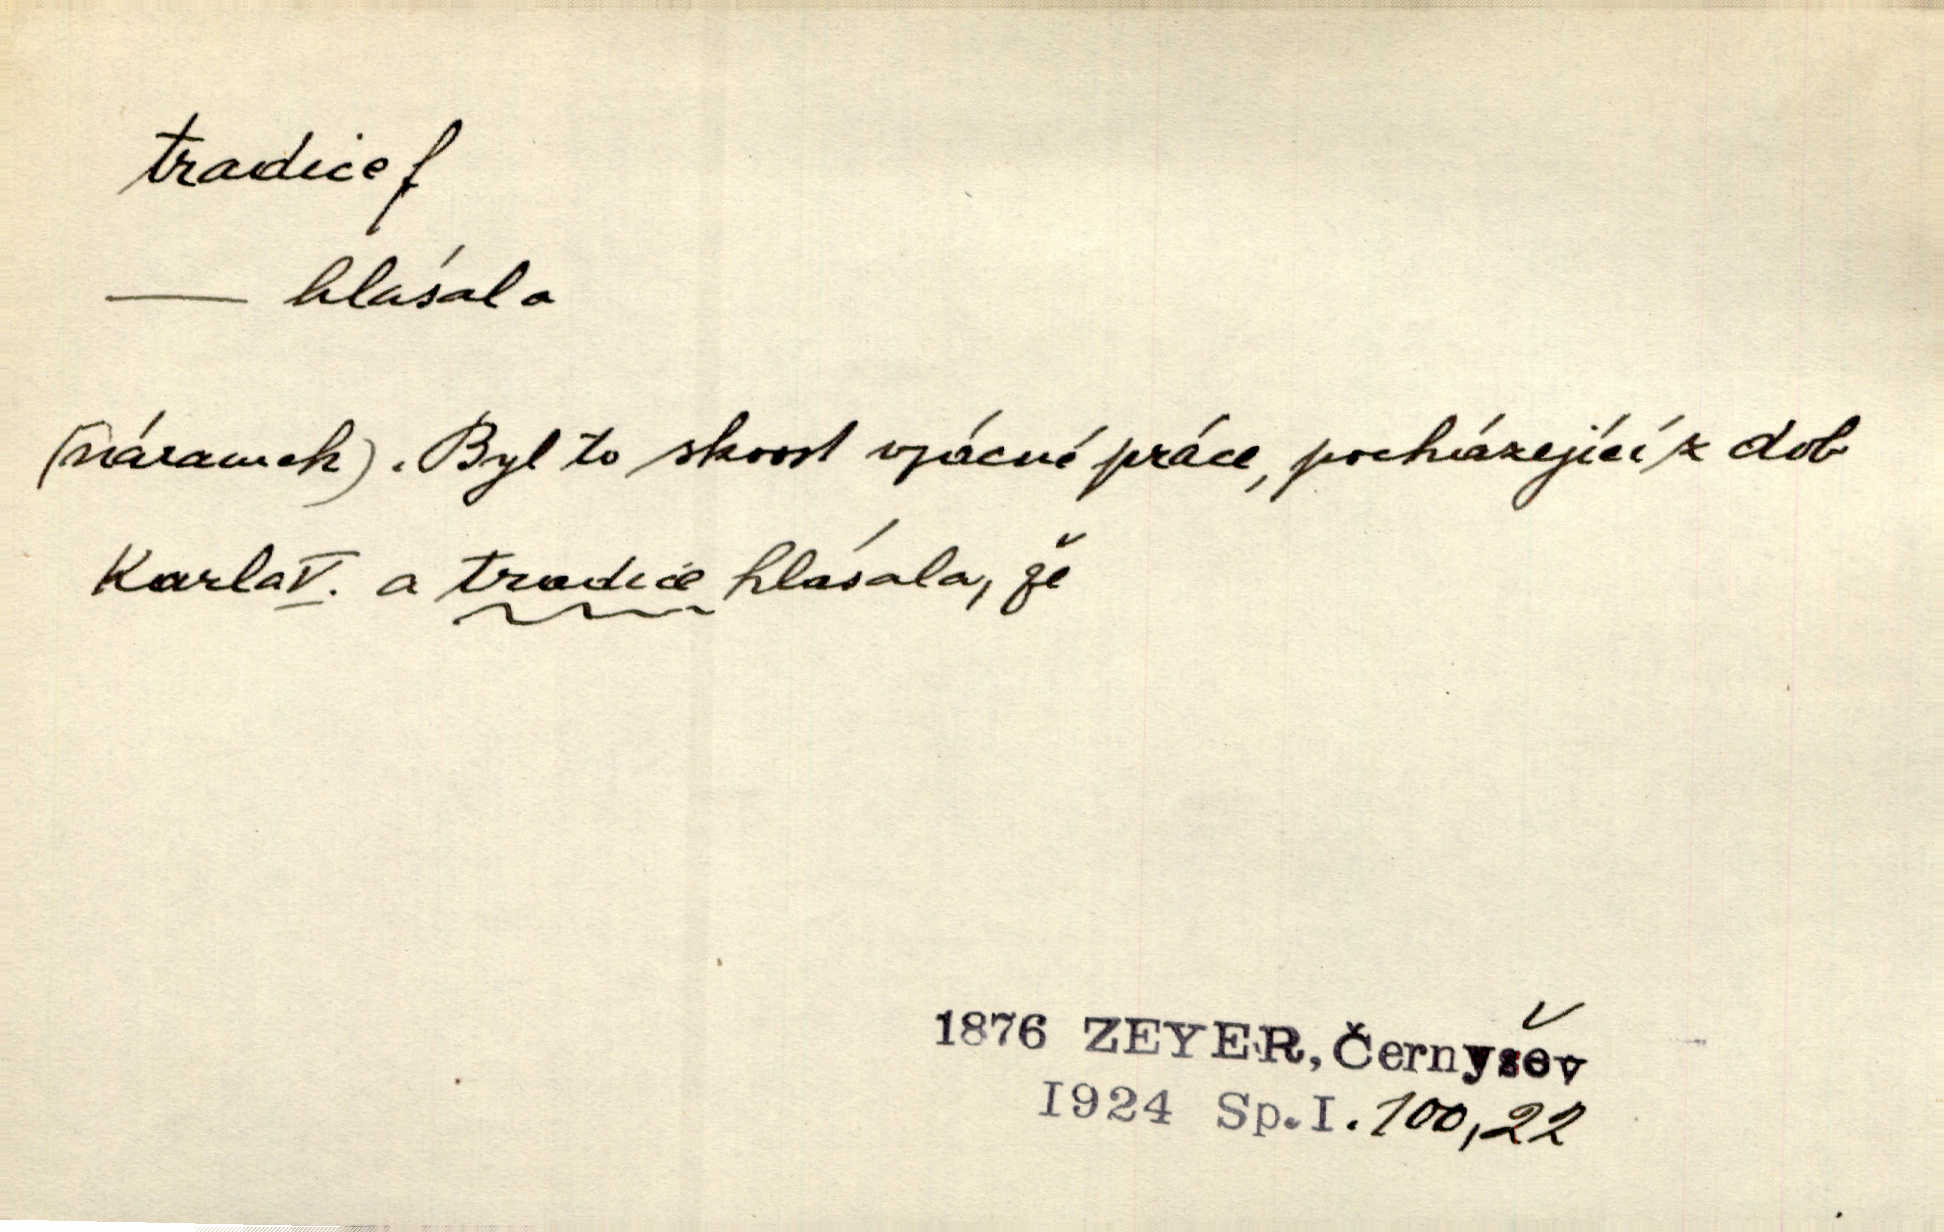 tradice f
— hlásala
(náramek). Byl to skvost vzácné práce, pocházející z dob
Karla V. a tradice hlásala, že
1876 ZEYER, Černyšev
1924 Sp.I. 100,22